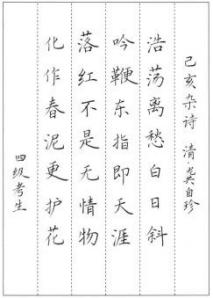 己亥杂诗 清·龚自珍
浩荡离愁白日斜
吟鞭东指即天涯
落红不是无情物
化作春泥更护花
四级考生